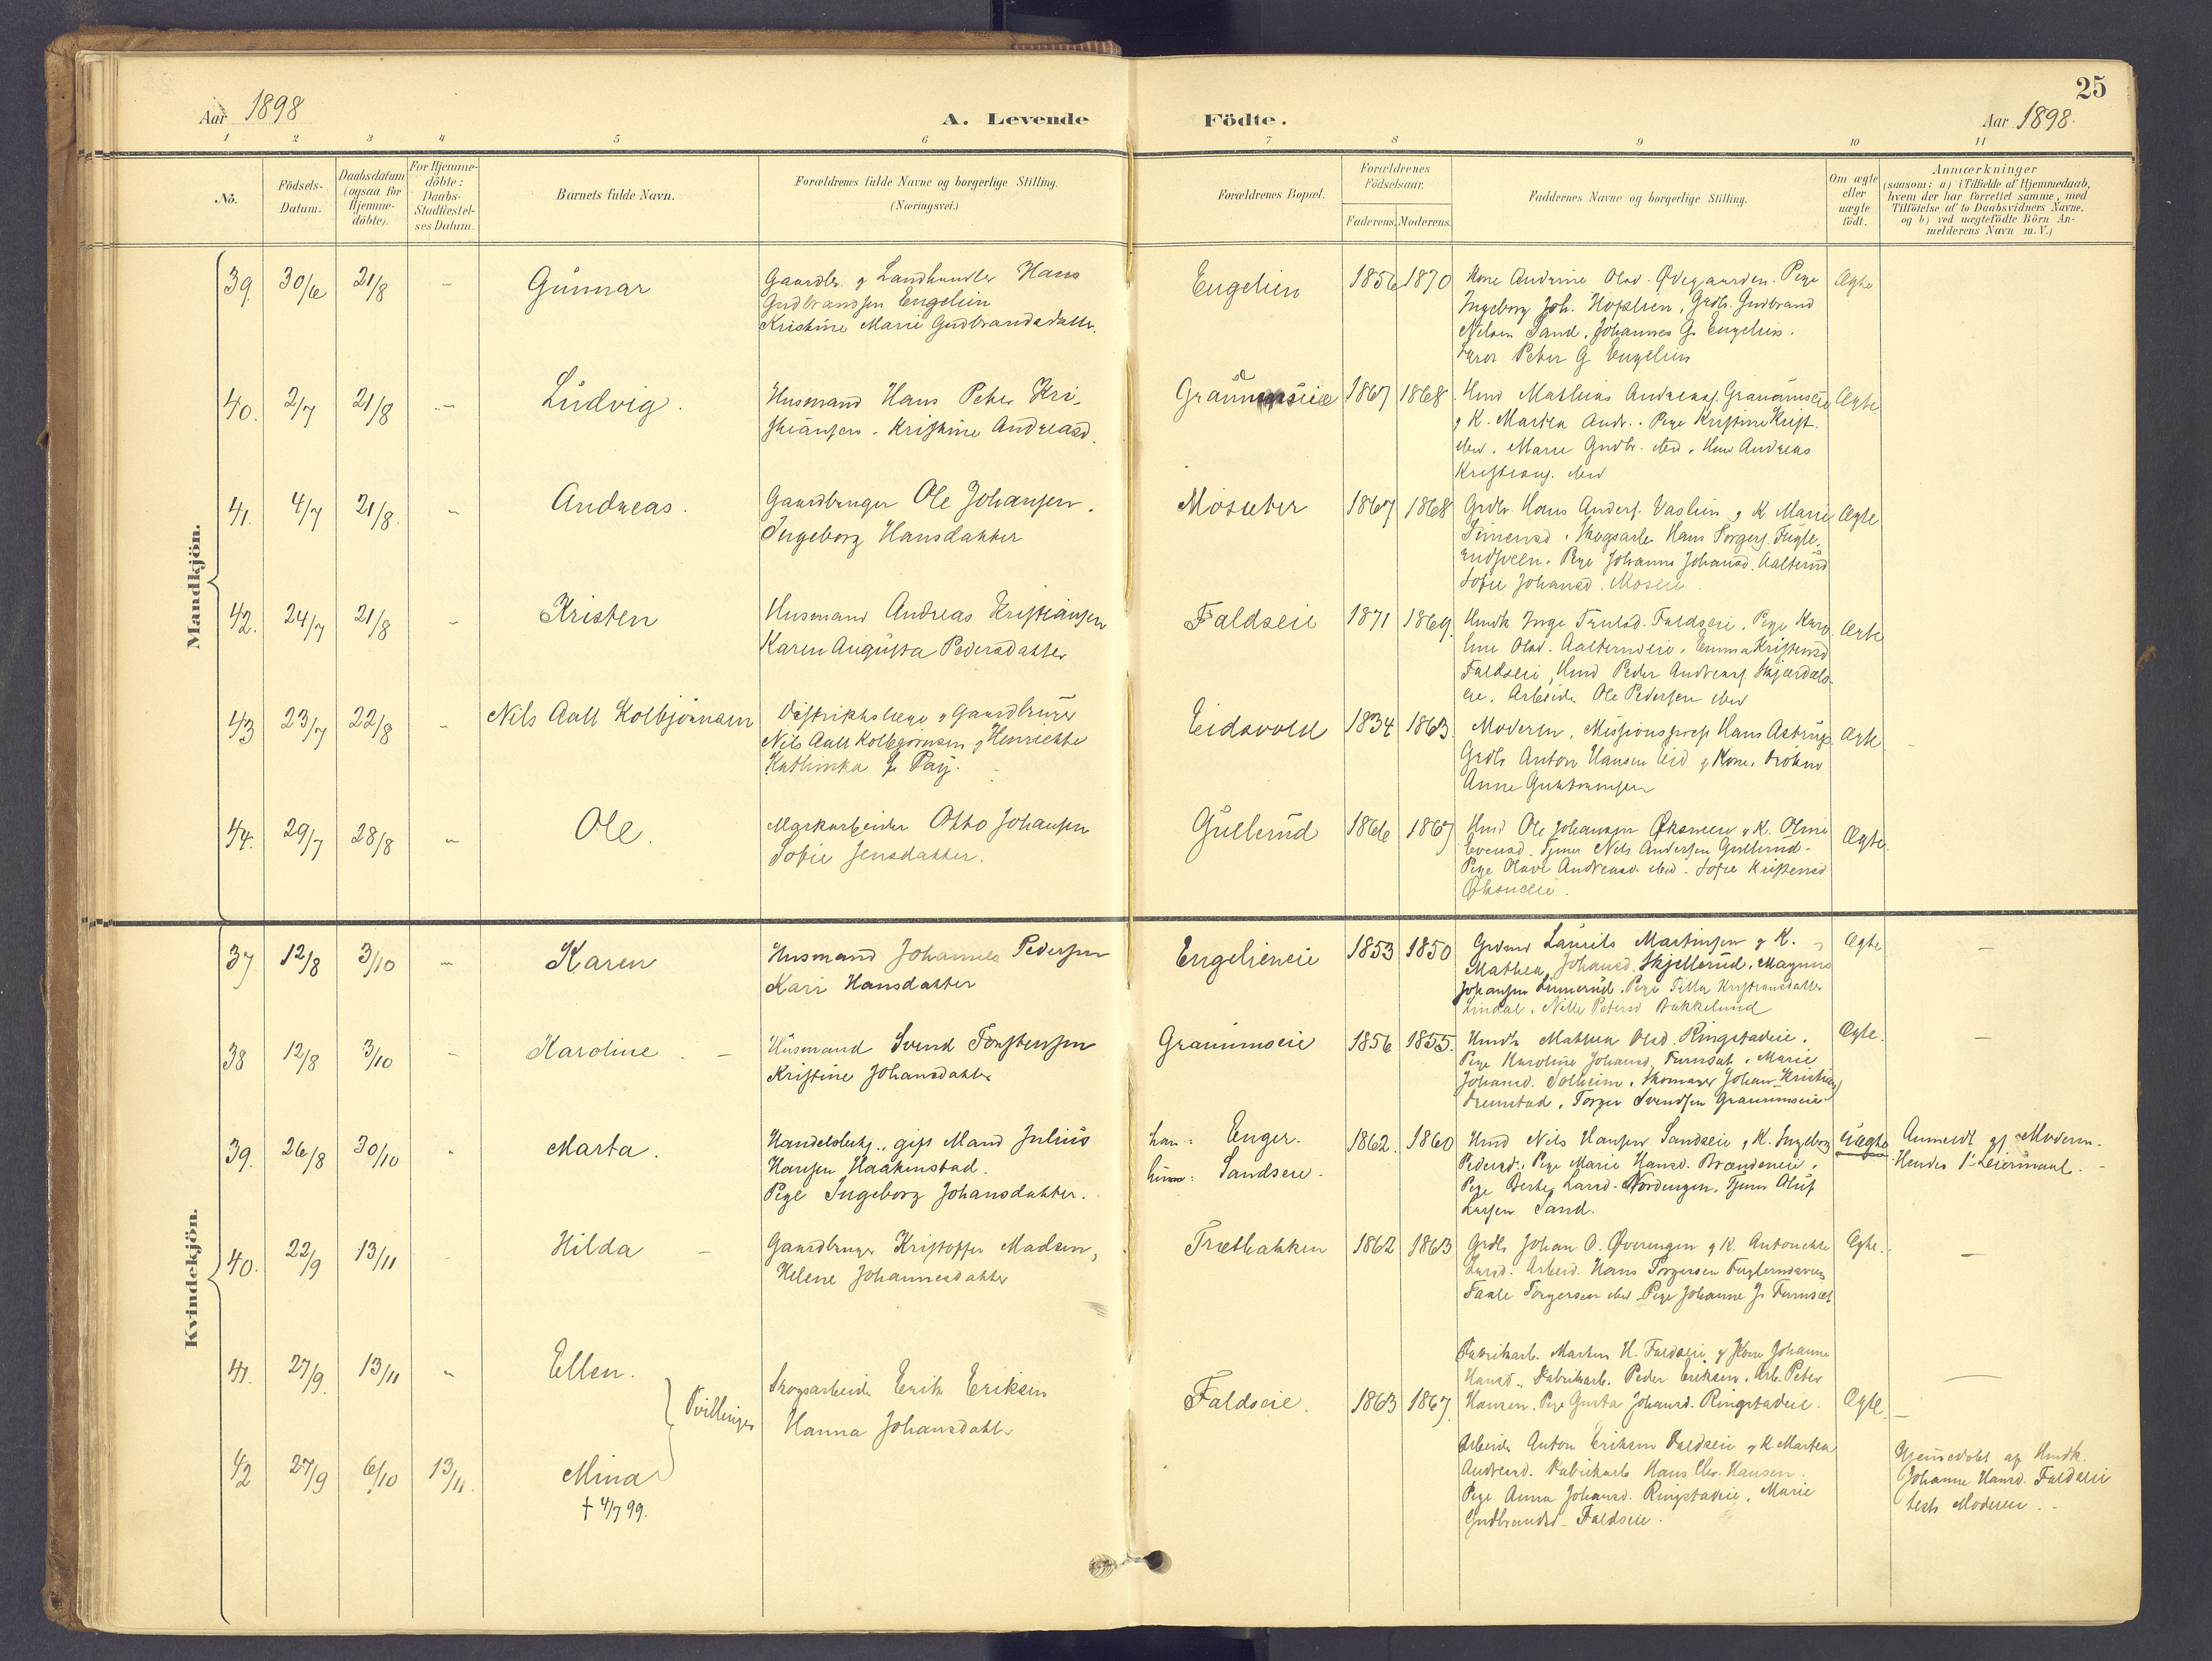 25
Aar 1898
A. Levende Födte.
Aar 1898.
1 2 3 4 5 6 7 8 9 10 11
No.
Födsels-Datum.
Daabsdatum (ogsaa for Hjemme-döbte).
For Hjemme-döbte: Daabs-Stadfæstel-ses Datum.
Barnets fulde Navn.
Forældrenes fulde Navne og borgerlige Stilling.
(Næringsvei.)
Forældrenes Bopæl.
Forældrenes Födselsaar.
Faderens. Moderens.
Faddernes Navne og borgerlige Stilling.
Om ægte eller uægte födt.
Anmærkninger
(saasom: a) i Tilfælde af Hjemmedaab,
hvem der har forrettet samme, med
Tilföielse af to Daabsvidners Navne.
og b) ved uægtefödte Börn An-
melderens Navn m. V.)
Mandkjön.
39. 30/6 21/8 - Gunnar
Gaardbr. og Landhandler Hans
Gudbrandsen Engelien
Kristine Marie Gudbrandsdatter.
Engelien 1856 1870
Kone Andrine Olsd. Ødegaarden. Pige
Ingeborg Joh. Hofslien, Grdb. Gudbrand
Nilsen Sand, Johannes G. Engelien.
Peter G. Engelien
Ægte
40. 2/7 21/8 - Ludvig.
Husmand Hans Peter Kri-
stiansen. Kristine Andreasd.
1867 1868
Hmd Mathias Andreass.
K. Marthea Andr. Pige Kristine Krist.
ibid. Marie Gudbr. ibid. Andreas
Kristians. ibid
Ægte
41. 4/7 21/8. - Andreas.
Gaardbruger Ole Johansen.
Ingeborg Hansdatter
Moseter 1867 1868
Grdbr. Hans Anders. Vaslien og K. Marie
Simensd. Skogsarb. Hans Torgers. Fugle-
rudsveen. Pige Johanne Johansd. Aalterud
Sofie Johansd. Moseie
Ægte
42. 24/7 21/8 - Kristen
Husmand Andreas Kristiansen
Karen Augusta Pedersdatter
Faldseie 1871 1869.
Hmdk Inge Trulsd. Faldseie. Pige Karo-
line Olsd. Aalterudeie. Emma Kristensd
Faldseie, Hmd Peder Andreass. Skjærdals-
eie. Arbeider Ole Pedersen ibid
Ægte
43 23/7 22/8 - Nils Aall Kolbjörnsen
Distriktslæge og Gaardbruger
Nils Aall Kolbjörnsen og Henriette
Kathinka f. Pay.
Eidsvold 1834 1863.
Moderen, Missionsprest Hans Astrup
Grdb Anton Hansen Eid og Kone, Fröken
Anne
Ægte
44. 29/7 28/8 - Ole.
Markarbeider Otto Johansen
Sofie Jensdatter.
Gullerud 1866 1867
Hmd Ole Johansen og K. Oline
Evensd. Tjener Nils Andersen Gullerud.
Pige Olava Andreasd. ibid. Sofie Kristensd
Ægte.
Kvindekjön.
37 12/8 3/10 - Karen
Husmand Johannes Pedersen
Kari Hansdatter
Engelieneie 1853 1850
Grdmd Laurits Martinsen og K.
Mathea Johansd. Skjellerud, Magnus
Johansen Linnerud. Pige Tilla Kristiansdatter
Lindal. Nille Petersd Bakkelund
Ægte -
38 12/8 3/10 - Karoline. -
Husmand Svend Torstensen
Kristine Johansdatter
Graunmseie 1856 1855.
Hmdk Mathea Olsd. Ringstadeie.
Pige Karoline Johansd. Furusæt. Marie
Johansd. Solheim. Skomager Johan Kristians
Torger Svendsen
Ægte. -
39. 26/8 30/10 - Marta.
Handelsbetj., gift Mand Julius
Hansen Haakenstad.
Pige Ingeborg Johansdatter.
han: Enger.
hun: Sandseie.
1862. 1860
Hmd Nils Hansen Sandseie og K. Ingeborg
Pedersd., Pige Marie Hansd. Brændeneie,
Pige Berthe Larsd. Nordengen. Tjener Oluf
Larsen Sand.
Uægte
Anmeldt af Moderen.
Hendes 1ste Leiermaal. -
40. 22/9 13/11 - Hilda -
Gaardbruger Kristoffer Madsen,
Helene Johannesdatter
Træthakken 1862 1863
Grdb. Johan O. Øverengen og K. Antonette
Larsd. Arbeid. Hans Torgersen
Torgersen ibid. Pige Johanne J. Furusæt
Ægte. -
41. 27/9. 13/11 - Ellen.
} Tvillinger
Skogsarbeider Erik Eriksen
Hanna Johansdatter
Faldseie. 1863 1867.
Fabrikarb. Martin H. Faldseie og Kone Johanne
Hansd., Fabrikarb. Peder Eriksen, Arb. Peter
Hansen, Pige Gusta Johansd. Ringstadeie.
Ægte. -
42 27/9 6/10 13/11. Mina
† 4/7 99.
Arbeider Anton Eriksen Faldseie og K. Martea
Andreasd. Fabrikarb. Hans Chr. Hansen.
Pige Anna Johansd. Ringstadeie, Marie
Gudbrandsd. Faldseie.
Hjemmedøbt af Hmdk.
Johanne Hansd. Faldseie
test. Moderen. -